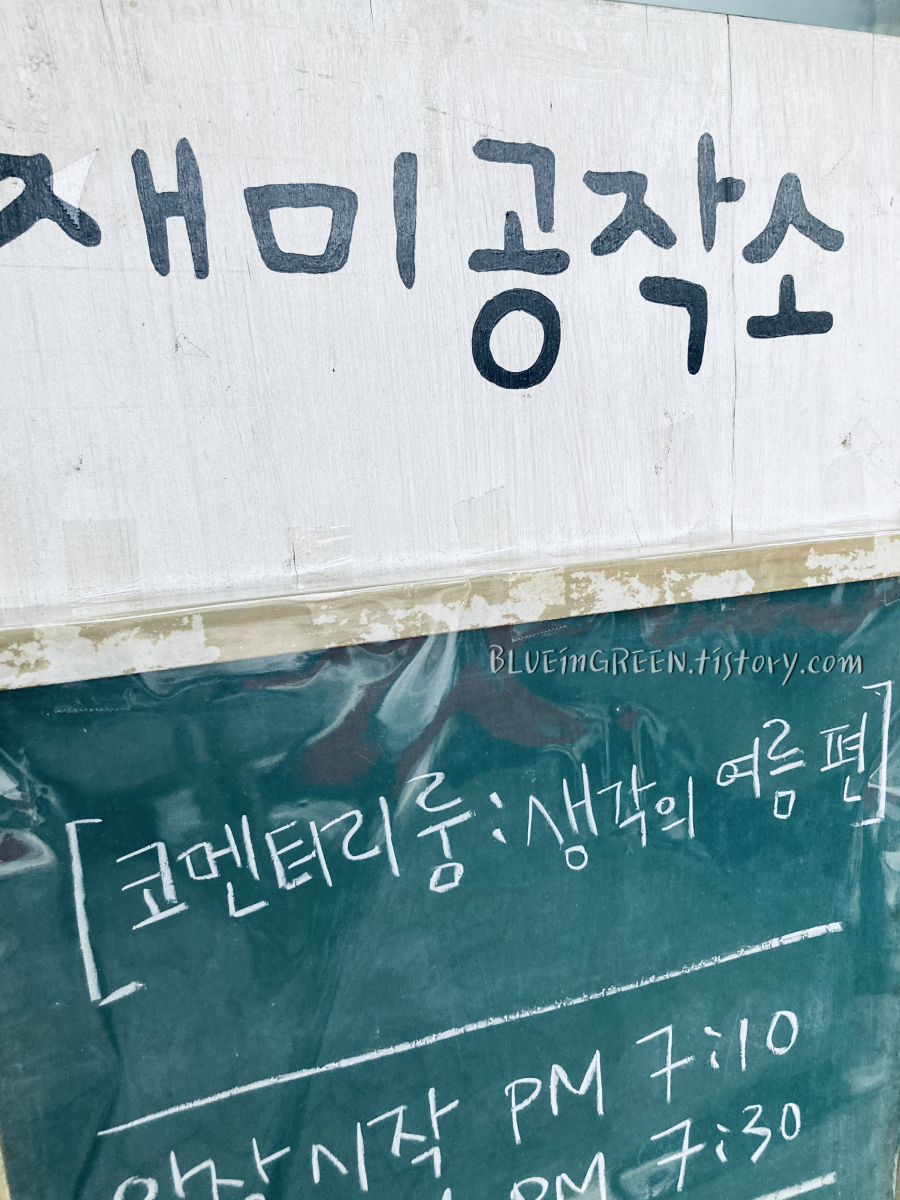 재미공작소
BLUEinGREEN.tistory.com
[코멘터리룸:생각의 여름 편]
입장시작 PM 7:10
PM 7:30